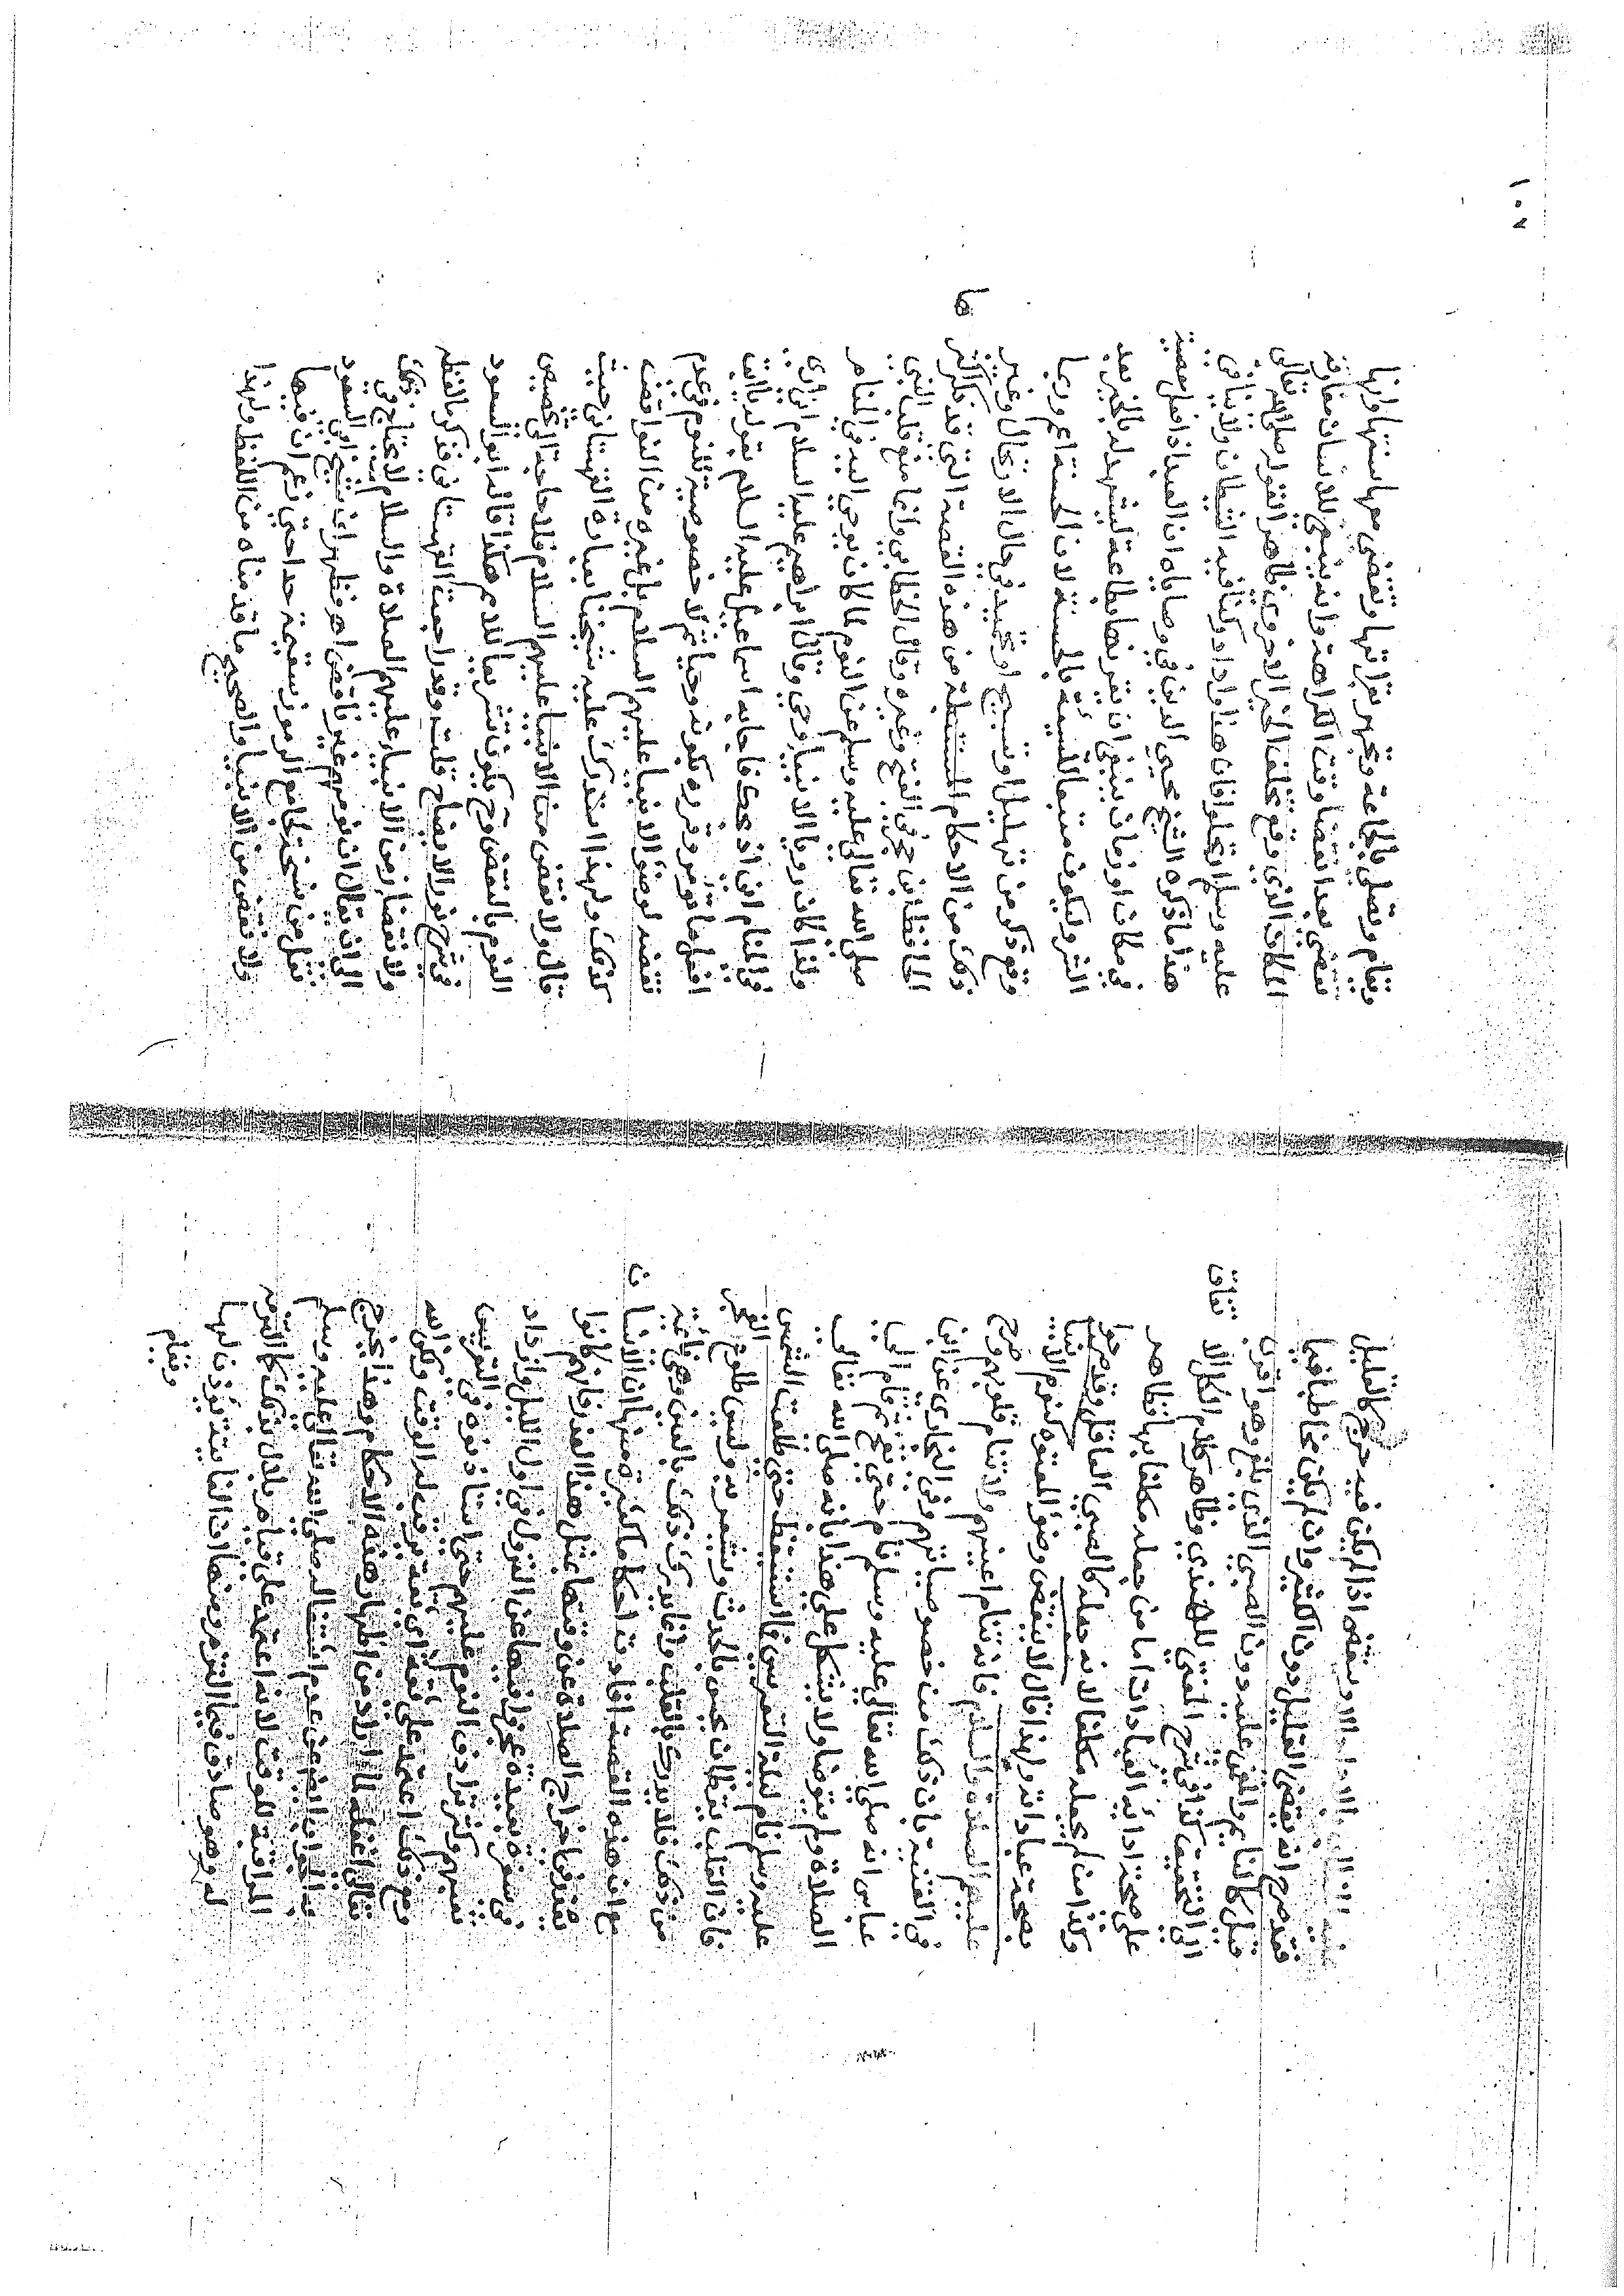 فقد صرح انه يقضي القليل دون الكثير وان لم يكن مخاطبا فيما
قبل كالنائم والمغمى عليه دون الصبي الذي بلغ وهو اقرب
الى التحقيق كذا في شرح المغني للهندي وظاهر كلام الكل الاتفاق
على صحة ادائه العبادات اما من جعله مكلفا بها فظاهر
وكذا من لم يجعله مكلفا لانه جعله كالصبي العاقل وقد صرحوا
بصحة عباداته ولهذا قال لا ينقض وضوء المعتوه كنوم الانبياء
عليهم الصلاة والسلام فانه تنام اعينهم ولا تنام قلوبهم وصرح
في القنية بان ذلك من خصوصياتهم وفي البخاري عن ابن
عباس انه صلى الله تعالى عليه وسلم نام حتى نفخ ثم قام الى
الصلاة ولم يتوضأ ولا يشكل على هذا بانه صلى الله تعالى
عليه وسلم نام ليلة التعريس فما استيقظ حتى طلعت الشمس
فان القلب يقظان يحس بالحدث ويشعر به وليس طلوع الفجر
من ذلك فلا يدرك بالقلب وانما يدرك ذلك بالعين وهي نائمة
ثم ان هذه القصة افادت احكاما كثيرة منها ان الانسان
معذور في اخراج الصلاة عن وقتها بمثل هذا العذر فانهم كانوا
في سفرة بعيدة عجزوا فيها عن النزول في اول الليل وازداد
تعبهم وكثر ترادف النوم عليهم حتى استأذنوه في التعريس
ومع ذلك اعتمد على ثقة اي ثقة ترقب له الوقت ولكن الله
تعالى اغفله لما اراد من اظهار هذه الاحكام وهذا يخرج
به الجواب ايضا عن عدم استثنائه صلى الله تعالى عليه وسلم
المراقبة للوقت لانه اعتمد على قيام بلال بذلك كما التزمه
له وهو صادق فيما التزم ومنها ان الفائتة يؤذن لها
ونقام
ونقام وتصلي بالجماعة ويجهر بقرائتها وتقضي معها سنتها وانها
تقضى بعد انقضاء وقت الكراهة وانه ينبغي للانسان مفارقة
المكان الذي وقع تخلف الخير الاخروي ظاهر القوله صلى الله تعالى
عليه وسلم ارتحلوا فان هذا واد وكلنا فيه الشيطان ولا ينافي
هذا ما ذكره الشيخ محيي الدين في وصاياه ان العبد اذا فعل معصية
في مكان او زمان ينبغي ان يقرنها بطاعة ليشهد له بالخير بعد
الشر وليكون متبعا للسيئة بالحسنة لان الحسنة اعم وربما
وقع ذكر من تهليل او تسبيح او تحميد في حال الارتحال وغير
ذلك من الاحكام المستنبطة من هذه القصة التي قد ذكر اكثر
الحافظ ابن حجر في الفتح وغيره وقال الخطابي وانما منع قلب النبي
صلى الله تعالى عليه وسلم عن النوم لما كان يوحى اليه في المنام
ولذا كان رؤيا الانبياء وحي وقال ابراهيم عليه السلام اني ارى
في المنام اني اذبحك فاجابه اسماعيل عليه السلام بقوله يا ابت
افعل ما تؤمر وقرره بكونه وحيا ثم لا خصوصية للنوم في عدم
نقضه لوضوء الانبياء عليهم السلام بل غيره من النواقض
كذلك ولهذا استدرك عليه شيخنا بعبارة القهستاني حيث
قال ولا نقض من الانبياء عليهم السلام فلا حاجة الى تخصيص
النوم بالنقض وح يكون تشريعا للامم هكذا قاله ابو السعود
في شرح نور الايضاح قلت وقد راجعت القهستاني فذكر بالفظه
ولا نقضا من الانبياء عليهم الصلاة والسلام لا يحتاج في ذلك
الى ان يقال ان نومهم غير ناقض اهـ فظهر ان شيخ ابي السعود
نقل من نسخة لجامع الرموز سقيمة جدا حتى زعم ان فيها
ولا نقض من الانبياء والصحيح ما قدمناه من اللفظ ولهذا